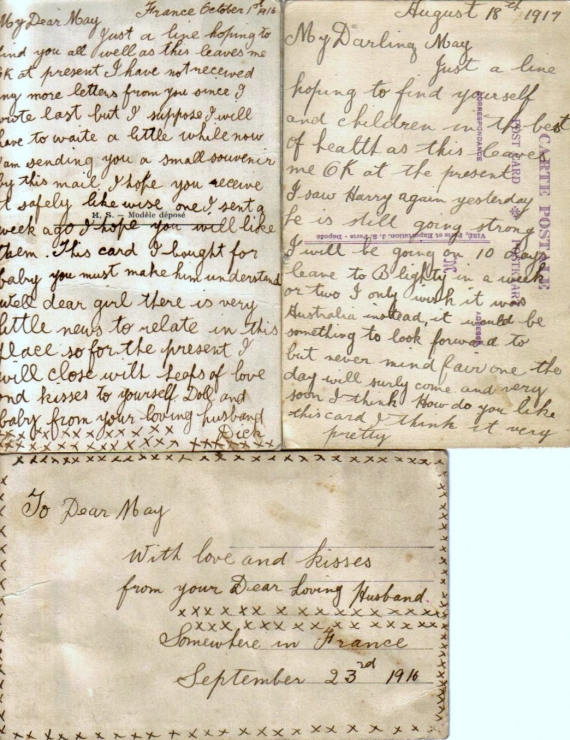 France October 1st 1916
My Dear May
Just a line hoping to
find you all well as this leaves me
OK at present I have not received
any more letters from you since I
wrote last but I suppose I will
have to waite a little while now
I am sending you a small souvenir
by this mail I hope you receive
it safely like wise one I sent a
H. S. — Modèle déposé
week ago I hope you will like
them. This card I bought for
baby you must make him understand
Well dear girl there is very
little news to relate in this
place so for the present I
will close with heaps of love
and kisses to yourself Doll and
baby from your loving husband
Dick
August 18th 1917
My Darling May
Just a line
hoping to find yourself
and children in the best
of health as this leaves
me OK at the present
I saw Harry again yesterday
he is still going strong
I will be going on 10 days
leave to Blighty in a week
or two I only wish it was
Australia instead, it would be
something to look forward to
but never mind fair one the
day will surly come and very
soon I think How do you like
this card I think it very
pretty
CARTE POSTALE
POST CARD
CORRESPONDANCE
To Dear May
With love and kisses
from your Dear Loving Husband.
xxx xx x x x x x x x x x x
xx xx x x x x x x x x x
Somewhere in France
September 23rd 1916